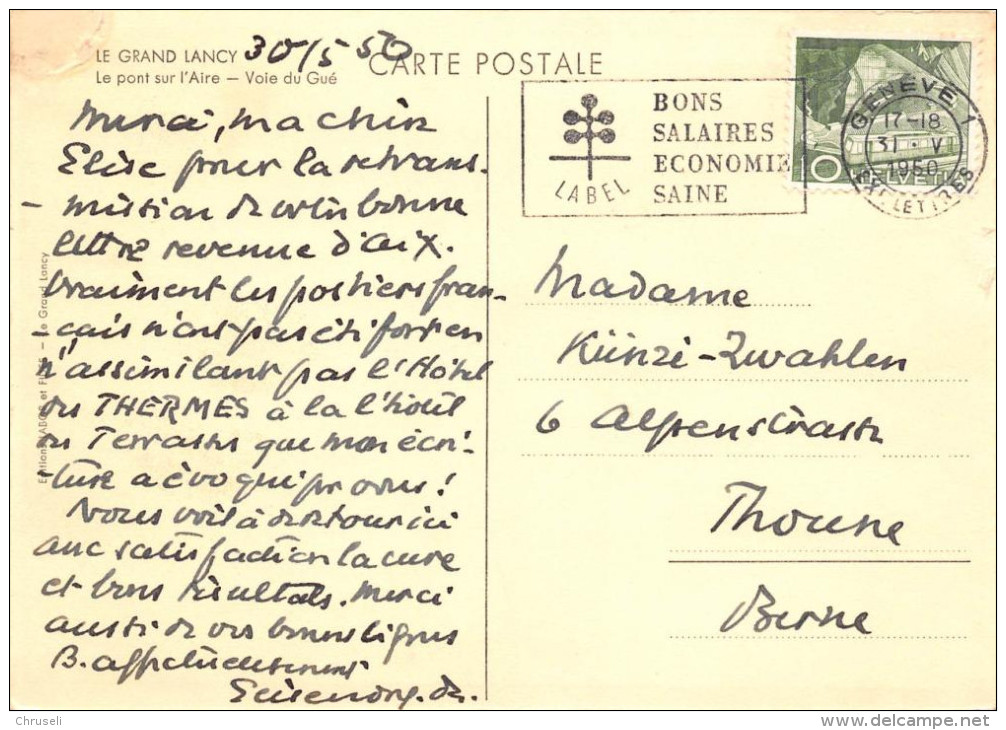 LE GRAND LANCY 30/5 50
Le pont sur l'Aire — Voie du Gué
CARTE POSTALE
BONS
SALAIRES
ECONOMIE
SAINE
LABEL
GENÈVE 1
17-18
31 · V
1950
EXP. LETTRES
10 HELVETIA
Merci, ma chère
Elise pour la retrans-
- mission de votre bonne
lettre revenue d'Aix.
Vraiment les postiers fran-
- çais n'ont pas été forts en
n'assimilant pas l'Hôtel
des THERMES à la l'hôtel
des Terrasses que mon écri-
- ture a évoqué pr vous!
Nous voilà de retour ici
avec satisfaction la cure
et bons résultats. Merci
aussi de vos bonnes lignes
B. affectueusement
Edition et Fils — Le Grand Lancy
Madame
Künzi-Zwahlen
6 Alpenstrasse
Thoune
Berne
Chruseli
www.delcampe.net